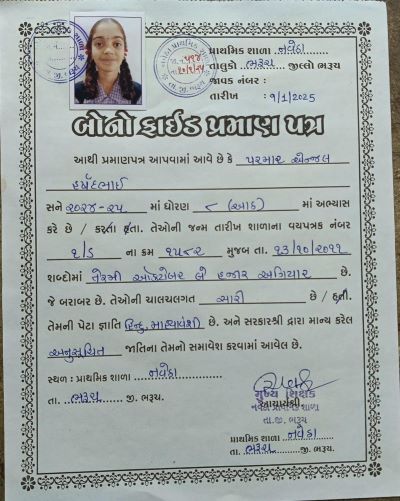 પ્રાથમિક શાળા નવેઠા
તાલુકો ભરૂચ જીલ્લો ભરૂચ
જાવક નંબર :
તારીખ : ૧/૧/2025
બોનોફાઈડ પ્રમાણ પત્ર
આથી પ્રમાણપત્ર આપવામાં આવે છે કે પરમાર એન્જલ
હર્ષદભાઈ
સને ૨૦૨૪-૨૫ માં ધોરણ ૮ (આઠ) માં અભ્યાસ
કરે છે / કરતા હતા. તેઓની જન્મ તારીખ શાળાના વયપત્રક નંબર
૧/ડ ના ક્રમ ૧૫૮૨ મુજબ તા. ૧૩/૧૦/૨૦૧૧
શબ્દોમાં તેરમી ઓક્ટોબર બે હજાર અગિયાર છે.
જે બરાબર છે. તેઓની ચાલચલગત સારી છે / હતી.
તેમની પેટા જ્ઞાતિ હિન્દુ માહ્યાવંશી છે. અને સરકારશ્રી દ્વારા માન્ય કરેલ
અનુસૂચિત જાતિના તેમનો સમાવેશ કરવામાં આવેલ છે.
સ્થળ : પ્રાથમિક શાળા નવેઠા
તા. ભરૂચ જી. ભરૂચ.
મુખ્ય શિક્ષક
આચાર્યશ્રી
નવેઠા પ્રાથમિક શાળા
તા.જી. ભરૂચ
પ્રાથમિક શાળા નવેઠા
તા. ભરૂચ જી. ભરૂચ.